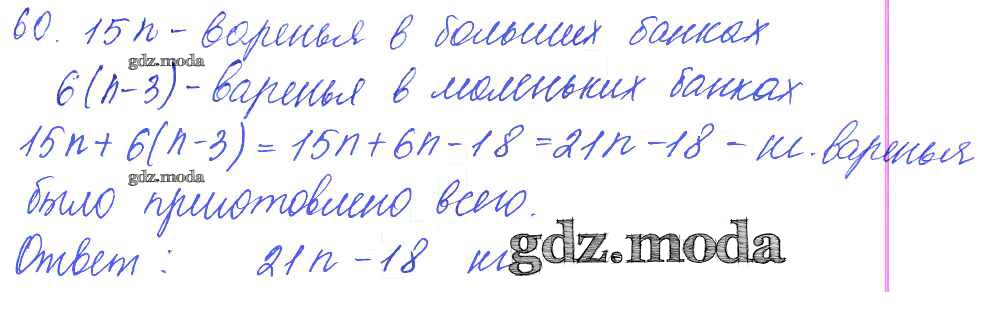 60. 15n - варенья в больших банках
gdz.moda
6(n-3) - варенья в маленьких банках
15n + 6(n-3) = 15n + 6n - 18 = 21n - 18 - кг. варенья
gdz.moda
было приготовлено всего.
Ответ: 21n - 18 кг
gdz.moda